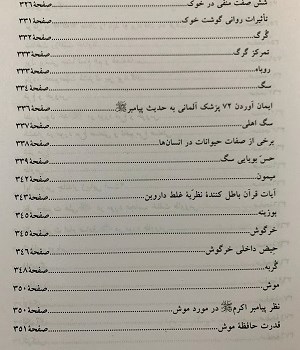 شش صفت منفی در خوک......صفحهٔ۳۲۶
تأثیرات روانی گوشت خوک......صفحهٔ۳۳۱
گُرگ......صفحهٔ۳۳۲
تمرکز گرگ......صفحهٔ۳۳۳
روباه......صفحهٔ۳۳۳
سگ......صفحهٔ۳۳۴
ایمان آوردن ۷۲ پزشک آلمانی به حدیث پیامبرﷺ......صفحهٔ۳۳۶
سگ اهلی......صفحهٔ۳۳۷
برخی از صفات حیوانات در انسان‌ها......صفحهٔ۳۳۸
حسّ بویایی سگ......صفحهٔ۳۳۸
میمون......صفحهٔ۳۴۲
آیات قرآن باطل کنندهٔ نظریّهٔ غلط داروین......صفحهٔ۳۴۳
بوزینه......صفحهٔ۳۴۵
خرگوش......صفحهٔ۳۴۵
حیض داخلی خرگوش......صفحهٔ۳۴۶
گُربه......صفحهٔ۳۴۸
موش......صفحهٔ۳۵۰
نظر پیامبر اکرمﷺ در مورد موش......صفحهٔ۳۵۰
قدرت حافظهٔ موش......صفحهٔ۳۵۱